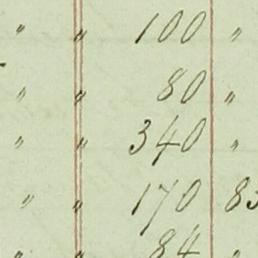 " " 100 "
" " 80 "
" " 340 "
" " 170 83
" " 84 "